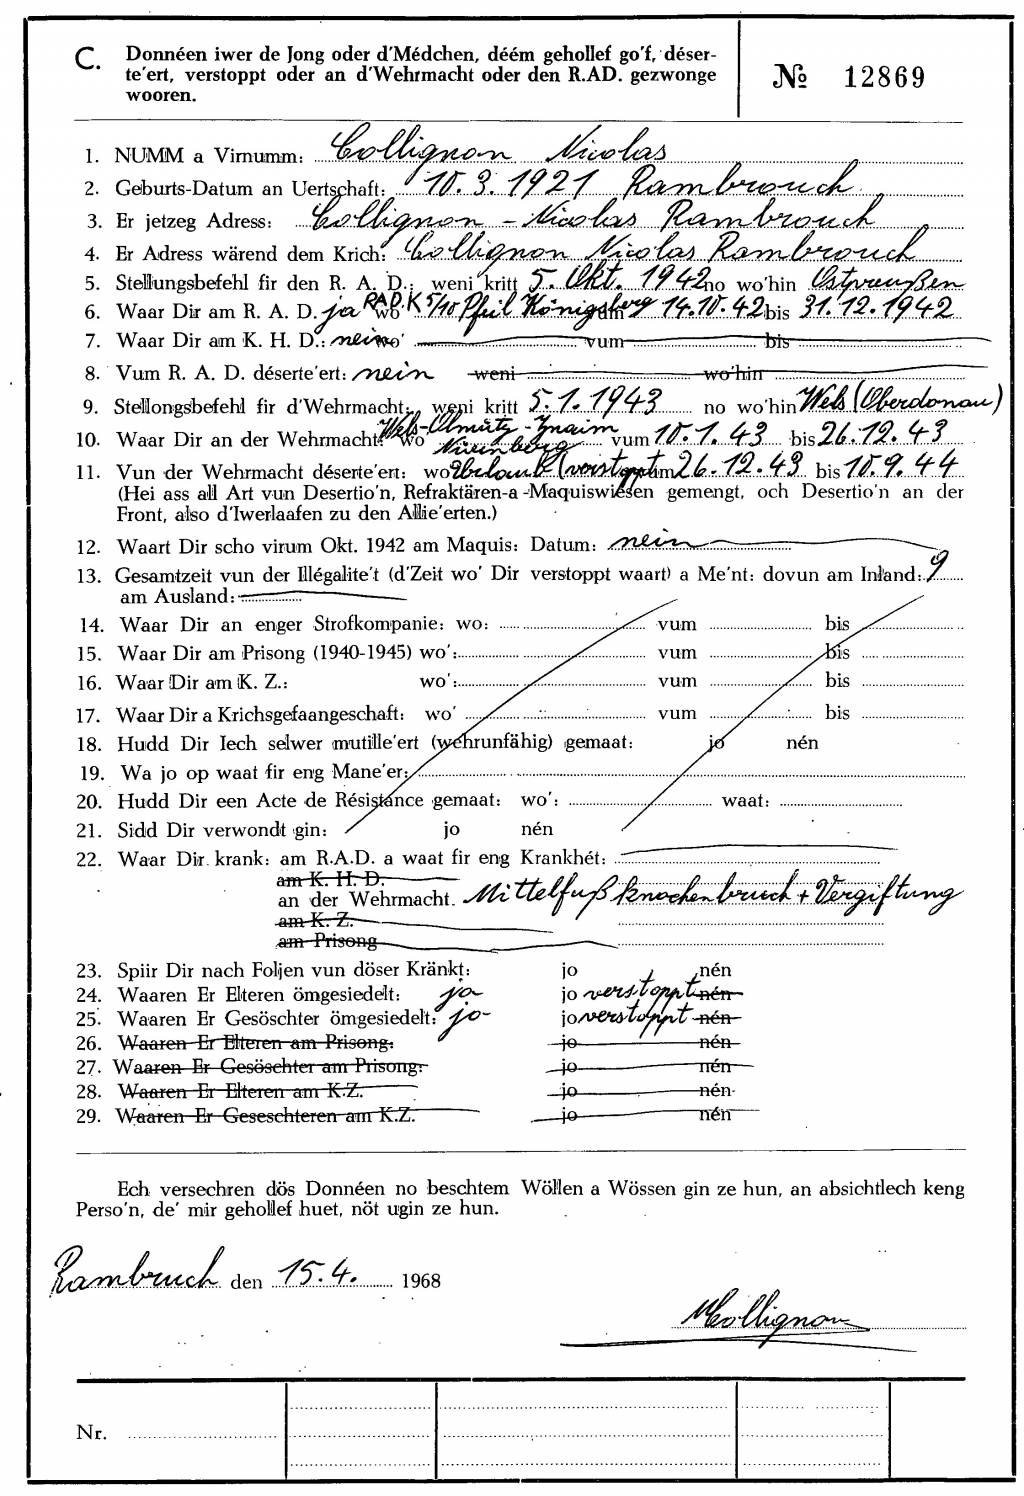 C. Donnéen iwer de Jong oder d'Médchen, déém gehollef go'f, déser-
te'ert, verstoppt oder an d'Wehrmacht oder den R.AD. gezwonge
wooren.
№ 12869
1. NUMM a Virnumm: Collignon Nicolas
2. Geburts-Datum an Uertschaft: 10.3.1921 Rambrouch
3. Er jetzeg Adress: Collignon - Nicolas Rambrouch
4. Er Adress wärend dem Krich: Collignon Nicolas Rambrouch
5. Stellungsbefehl fir den R. A. D.: weni kritt 5. Okt. 1942 no wo'hin Ostpreußen
6. Waar Dir am R. A. D. ja wo R.A.D. K 5/10 Pfeil Königsberg vum 14.10.42 bis 31.12.1942
7. Waar Dir am K. H. D.: nein wo' vum bis
8. Vum R. A. D. déserte'ert: nein weni wo'hin
9. Stellongsbefehl fir d'Wehrmacht: weni kritt 5.1.1943 no wo'hin Wels (Oberdonau)
10. Waar Dir an der Wehrmacht: wo Wels-Olmütz-Znaim Nürenberg vum 10.1.43 bis 26.12.43
11. Vun der Wehrmacht déserte'ert: wo Urlaub (verstoppt) vum 26.12.43 bis 10.9.44
(Hei ass all Art vun Desertio'n, Refraktären-a-Maquiswiesen gemengt, och Desertio'n an der
Front, also d'Iwerlaafen zu den Allie'erten.)
12. Waart Dir scho virum Okt. 1942 am Maquis: Datum: nein
13. Gesamtzeit vun der Illégalite't (d'Zeit wo' Dir verstoppt waart) a Me'nt: dovun am Inland: 9
am Ausland:
14. Waar Dir an enger Strofkompanie: wo: vum bis
15. Waar Dir am Prisong (1940-1945) wo': vum bis
16. Waar Dir am K. Z.: wo': vum bis
17. Waar Dir a Krichsgefaangeschaft: wo' vum bis
18. Hudd Dir Iech selwer mutille'ert (wehrunfähig) gemaat: jo nén
19. Wa jo op waat fir eng Mane'er:
20. Hudd Dir een Acte de Résistance gemaat: wo': waat:
21. Sidd Dir verwondt gin: jo nén
22. Waar Dir krank: am R.A.D. a waat fir eng Krankhét:
am K. H. D.
an der Wehrmacht. Mittelfußknochenbruch + Vergiftung
am K. Z.
am Prisong
23. Spiir Dir nach Foljen vun döser Kränkt: jo nén
24. Waaren Er Elteren ömgesiedelt: ja jo verstoppt nén
25. Waaren Er Gesöschter ömgesiedelt: jo jo verstoppt nén
26. Waaren Er Elteren am Prisong: jo nén
27. Waaren Er Gesöschter am Prisong: jo nén
28. Waaren Er Elteren am K.Z. jo nén
29. Waaren Er Geseschteren am K.Z. jo nén
Ech versechren dös Donnéen no beschtem Wöllen a Wössen gin ze hun, an absichtlech keng
Perso'n, de' mir gehollef huet, nöt ugin ze hun.
Rambruch den 15.4. 1968
NCollignon
Nr.